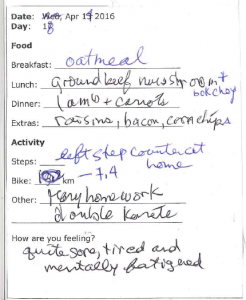 Date: Wed, Apr 13 2016
Day: 18
Food
Breakfast: oatmeal
Lunch: ground beef mushroom +
bok choy
Dinner: lamb + carrots
Extras: raisins, bacon, corn chips
Activity
Steps: left step counter at
home
Bike: km - 7,4
Other: Very homework
double Karate
How are you feeling?
quite sore, tired and
mentally fatigued